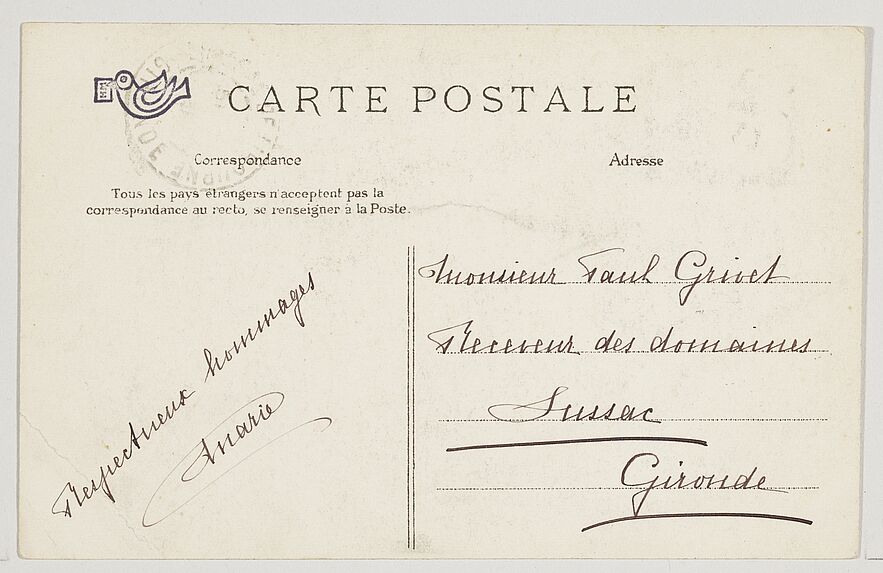 CARTE POSTALE
Correspondance
Adresse
Tous les pays étrangers n'acceptent pas la
correspondance au recto, se renseigner à la Poste.
Respectueux hommages
Marie
Monsieur Paul Grivet
Receveur des domaines
Lussac
Gironde